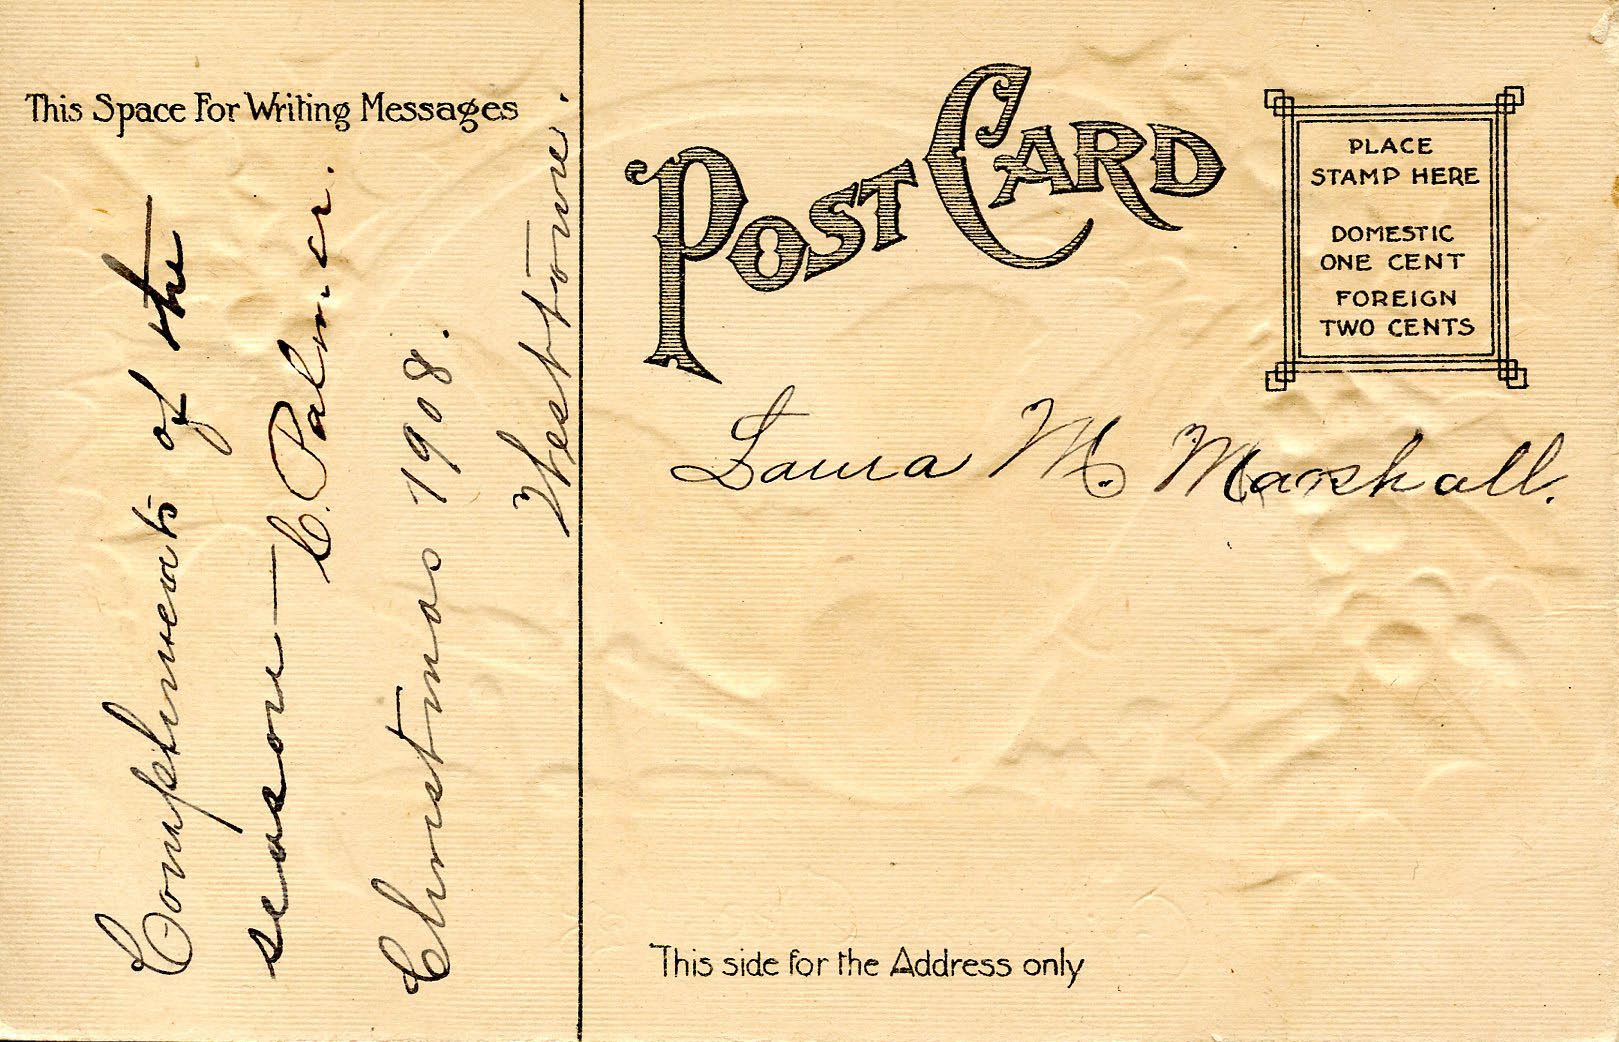 This Space For Writing Messages
Compliments of the
season—C. Palmer.
Christmas 1908.
Westtowne.
POST CARD
PLACE
STAMP HERE
DOMESTIC
ONE CENT
FOREIGN
TWO CENTS
Laura M. Marshall.
This side for the Address only